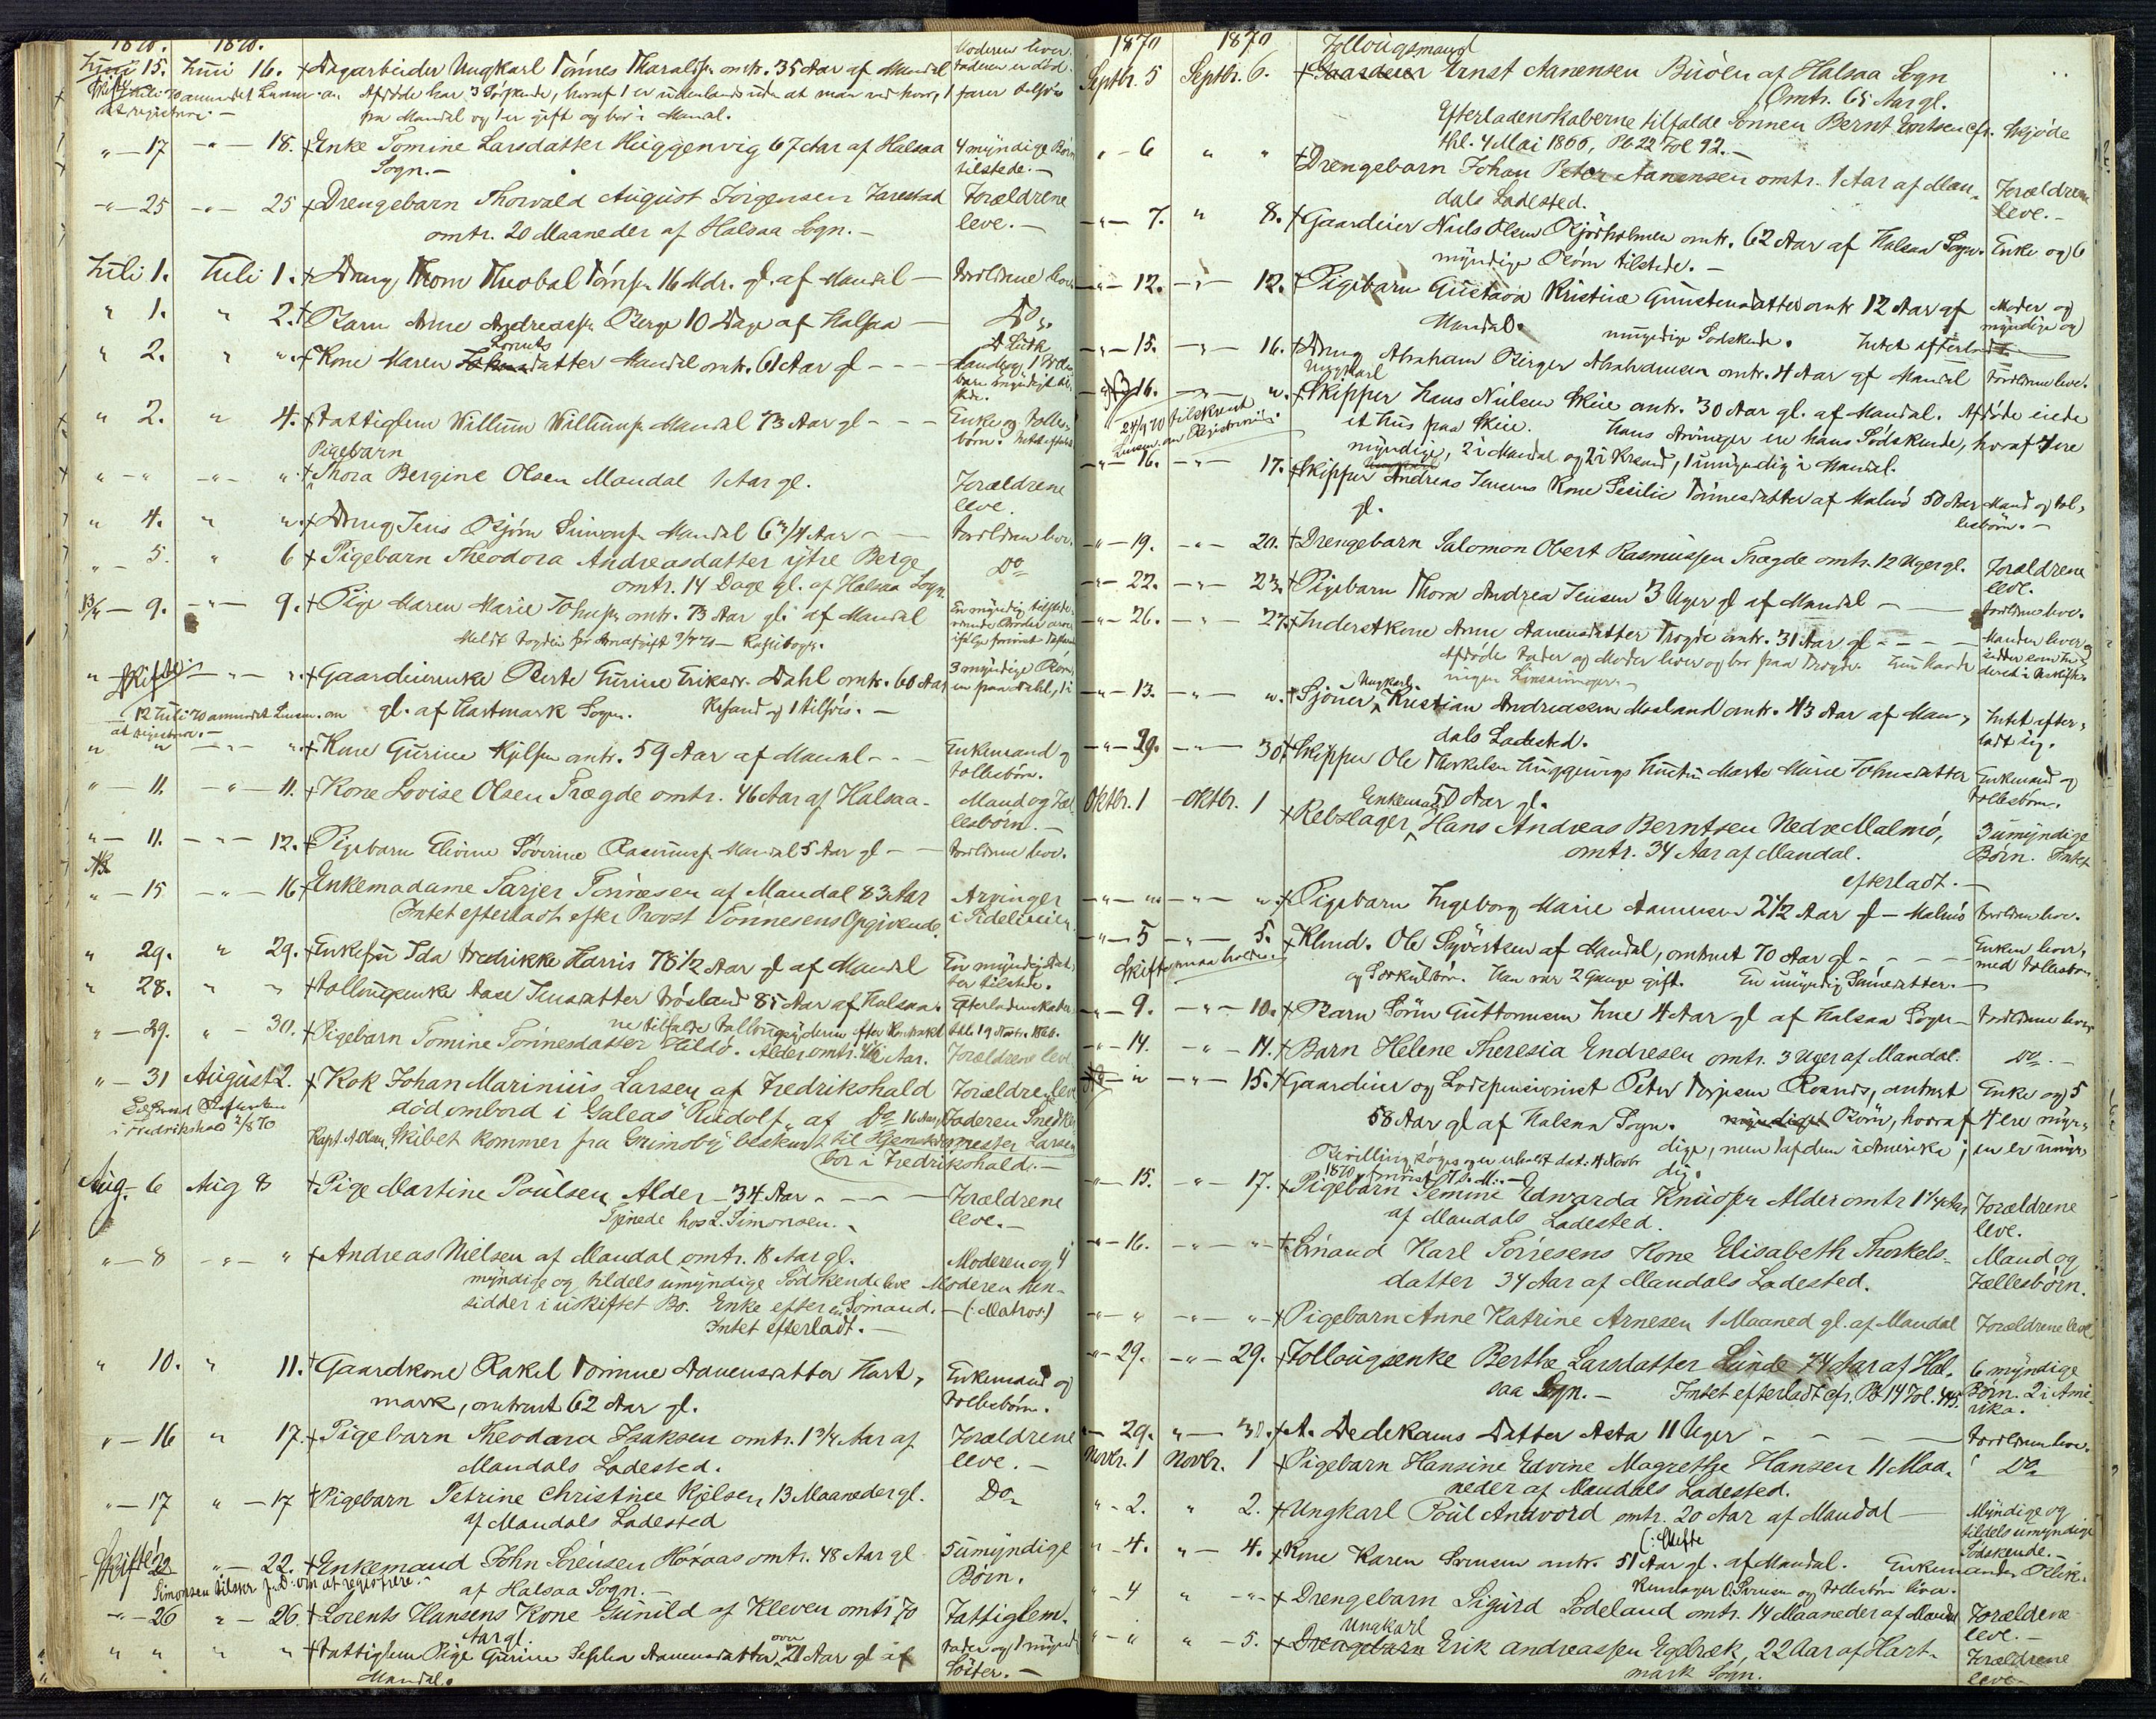 1870. 1870.
Juni 15. Juni 16. + Dagarbeider Ungkarl Tönnes Haraldsn. omtr. 35 Aar af Mandal
Moderen lever. Faderen er død.
Afdøde har 3 Søskende, hvoraf 1 er udenlands uden at man ved hvor, 1 farer tilsjøs
fra Mandal og 1 er gift og bor i Mandal.
" — 17 — " — 18. + Enke Tomine Larsdatter Huggenvig 67 Aar af Halsaa
Sogn. —
4 myndige Børn
tilstede. —
— " — 25 — " — 25 + Drengebarn Thorvald August Jörgensen Jarestad
omtr. 20 Maaneder af Halsaa Sogn. —
Forældrene
leve. —
Juli 1. Juli 1. + Dreng Thom Theobal 16 Mdr. gl. af Mandal —
Forældrene leve
" 1. " 2. + Barn Arne Andreassn. Berge 10 Dage af Halsaa —
Do.
" 2. " " + Kone Maren Lorentsdatter Mandal omtr. 61 Aar gl — — —
" 2. " 4. + Fattiglem Willum Willumsn. Mandal 73 Aar gl — — —
Enke og Fælles-
børn.
Pigebarn
" — " — " — " + Thora Bergine Olsen Mandal 1 Aar gl.
Forældrene
leve.
" 4. " " + Dreng Jens Bjørn Simonsn. Mandal 6 3/4 Aar —
Forældrene leve.
" — 5. " 6 + Pigebarn Theodora Andreasdatter ytre Berge
omtr. 14 Dage gl. af Halsaa Sogn.
Do
— 9. — " — 9. + Pige Maren Marie Johnsn. omtr. 73 Aar gl. af Mandal
Skifte — " — " + Gaardmandsenke Berte Gurine Eriksdr. Dahl omtr. 60 Aar
gl. af Hartmark Sogn. Krsand og 1 tilsjös. —
3 myndige Børn,
en paa Dahl, 1 i
12 Juli 70 anmodet Lensm. om
at registrere. —
" " — " — " + Kone Gurine Kjelsn. omtr. 59 Aar af Mandal — —
Enkemand og
Fællesbørn.
" — 11. — " — 11. + Kone Lovise Olsen Trægde omtr. 46 Aar af Halsaa —
Mand og Fæl-
lesbørn. —
" — 11. — " — 12. + Pigebarn Elvine Söverine Rasmussn. Mandal 5 Aar gl — —
Forældrene leve.
" — 15 — " — 16 + Enkemadame Tarjer Tönnesen af Mandal 83 Aar
Intet efterladt efter Provst Tönnesens Opgivende.
Arvinger
" 29. " 29. + Enkefru Ida Fredrikke Harris 78 1/2 Aar gl af Mandal
En myndig Dat-
ter tilstede.
" 28. " " + Follougsenke Aase Jensdatter Frösland 85 Aar af Halsaa.
Efterladenskaber-
ne tilfalde Follougsyderen efter Kontrakt
" — 29. " — 30. + Pigebarn Tomine Tönnesdatter Hildö. Alder omtr.
Forældrene leve
" — 31 August 2. + Kok Johan Marinius Larsen af Fredrikshald
död ombord i Galeas "Rudolf" af Do 16 Aar,
Kapt. A. Olsen. Skibet kommer fra Grimsby
Forældrene leve
Faderen Snedker-
mester Larsen
bor i Fredrikshald. —
Aug. 6 Aug 8 + Pige Martine Poulsen Alder — 34 Aar — — —
Tjenede hos L. Simonsen. —
Forældrene
leve. —
" — 8 — " — " + Andreas Nielsen af Mandal omtr. 18 Aar gl.
Moderen og 4
myndige og tildels umyndige Södskende leve Moderen hen-
sidder i uskiftet Bo. Enke efter en Sömand. — (: Matros :)
Intet efterladt. —
" 10. " 11. + Gaardkone Rakel Tomine Aanensdatter Hart-
mark, omtrent 62 Aar gl.
Enkemand og
Fællesbørn.
" — 16 " 17. + Pigebarn Theodora Isaksen omtr. 1 3/4 Aar af
Mandals Ladested.
Forældrene
leve. —
" — 17 " — 17 + Pigebarn Petrine Christine Kjelsen 13 Maaneder gl.
af Mandals Ladested
Do.
Skifte 22 " — 22. + Enkemand John Sörensen Höiaas omtr. 48 Aar gl
af Halsaa Sogn. —
5 umyndige
Børn.
Simonsen tilskr. om at registrere. —
— " — 26 " — 26. + Lorents Hansens Kone Gunild af Kleven omtr 70
Aar gl.
Fattiglem.
" " " " + Fattiglem Pige Gurine Sesilia Aanensdatter over 21 Aar gl af
Mandal.
Söster. —
1870 1870
Follougsmand
Septbr. 5 Septbr. 6. + Gaardeier Ernst Aanensen Buöen af Halsaa Sogn
Omtr. 65 Aar gl.
Efterladenskaberne tilfalde Sönnen Bernt Erntsen cfr. Skjöde
thl. 4 Mai 1866, Pb 22 Fol 92. —
" — 6 " " + Drengebarn Johan Peter Aanensen omtr. 1 Aar af Man-
dals Ladested.
Forældrene
leve. —
— " — 7. " 8. + Gaardeier Niels Olsen omtr. 62 Aar af Halsaa Sogn.
myndige Børn tilstede. —
Enke og 6
— " — 12. — " — 12. + Pigebarn Gustava Kristine Gunstensdatter omtr 12 Aar af
Mandal. umyndige Södskende. Intet efterladt
Moder og
myndige og
— " — 15. — " — 16. + Dreng Abraham Birger Abrahamsen omtr. 4 Aar af Mandal
Forældrene leve.
Ungkarl
16. — " — " + Skipper Hans Nielsen Skue omtr. 30 Aar gl. af Mandal. Afdöde eiede
et Hus paa Skue. Hans Arvinger ere hans Södskende, hvoraf 4 ere
myndige, 2 i Mandal og 2 i Krsand, 1 umyndig i Mandal.
24/9 70 tilskrevet
Lensm. om Registrering.
— " — 16. — " — 17. + Skipper Andreas Jensens Kone Sesilie Tönnesdatter af Malmö 50 Aar
gl.
Mand og Fæl-
lesbörn. —
— " — 19. — " — 20. + Drengebarn Salomon Obert Rasmussen Trægde omtr. 12 Uger gl.
Forældrene
leve.
— " — 22. — " — 23. + Pigebarn Thora Andrea Jensen 3 Uger gl af Mandal —
Forældrene leve.
— " — 26. — " — 27. + Inderstkone Anne Aanensdatter Trægde omtr. 31 Aar gl — — —
Afdöde Fader og Moder lever og bor paa Trægde. Hun havde
ingen Livsarvinger. —
Manden lever og
— " — 13. — " — " + Sjöuer Ungkarl Kristian Andreassen Maaland omtr. 43 Aar af Man-
dals Ladested.
Intet efter-
ladt sig.
— " — 29. 30. + Skipper Ole Therkelsen Huggenvigs Hustru Marte Marie Johnsdatter
50 Aar gl.
Enkemand og
Fællesbørn.
Oktbr. 1 Oktbr. 1 + Rebslager Enkemand Hans Andreas Berntsen Nedre Malmö,
omtr. 34 Aar af Mandal.
efterladt. —
3 umyndige
Børn. Intet
— " — " — " — " + Pigebarn Ingeborg Marie Aanensen 2 1/2 Aar gl — Malmö
Forældrene leve.
— " — 5 — " — 5. + Klmd. Ole Syvertsen af Mandal, omtrent 70 Aar gl — — —
og Særkulbörn. Han var 2 Gange gift. En umyndig Sönnedatter. —
Enken lever,
med Fællesbørn
Skifte maa holdes.
— " — 9. — " — 10. + Barn Sörin Guttormsen Lue 4 Aar gl af Halsaa Sogn —
Forældrene lever
— " — 14. — " — 14. + Barn Helene Theresia Endresen omtr. 3 Uger af Mandal.
Do. —
— " — 15. + Gaardeier og Lodspensionist Peter Torjesen Rosnes, omtrent
58 Aar gl af Halsaa Sogn. myndige Børn, hvoraf
Enke og 5
4 ere myn-
dige, men 1 af dem i Amerika; en er umyn-
dig.
— " — 15. — " — 17. + Pigebarn Semine Edvarda Knudsen Alder omtr 1 1/4 Aar
af Mandals Ladested.
Forældrene
leve.
— " — 16. — " — " + Sömand Karl Törresens Kone Elisabeth Thorkels-
datter 34 Aar af Mandals Ladested.
Mand og
Fællesbörn.
— " — " — " — " + Pigebarn Anne Katrine Arnesen 1 Maaned gl. af Mandal
Forældrene leve
— " — 29. — " — 29. + Follougsenke Berthe Larsdatter Lunde 74 Aar af Hal-
saa Sogn. — Intet efterladt cfr. Pb 14 Fol.
6 myndige
Börn. 2 i Ame-
rika.
— 29. " — 30. + A. Dedekams Datter Asta 11 Uger — — —
Forældrene leve.
Novbr. 1 Novbr. 1 + Pigebarn Hansine Edvine Magrethe Hansen 11 Maa-
neder af Mandals Ladested.
Do.
" — 2. " 2. + Ungkarl Poul Andvord omtr. 20 Aar af Mandal —
Myndige og
tildels umyndige
Södskende. —
" — 4. " — 4. + Kone Karen Sörensen omtr. 51 Aar gl. af Mandal. Enkemanden Blik-
kenslager O. Sörensen og Fællesbörn lever.
" — 4 " — " + Drengebarn Sigurd Lodeland omtr. 14 Maaneder af Mandal
Forældrene
leve. —
Ungkarl
" — " " — 5. + Drengebarn Erik Andreassen Egebæk, 22 Aar af Hart-
mark Sogn.
Forældrene
leve —